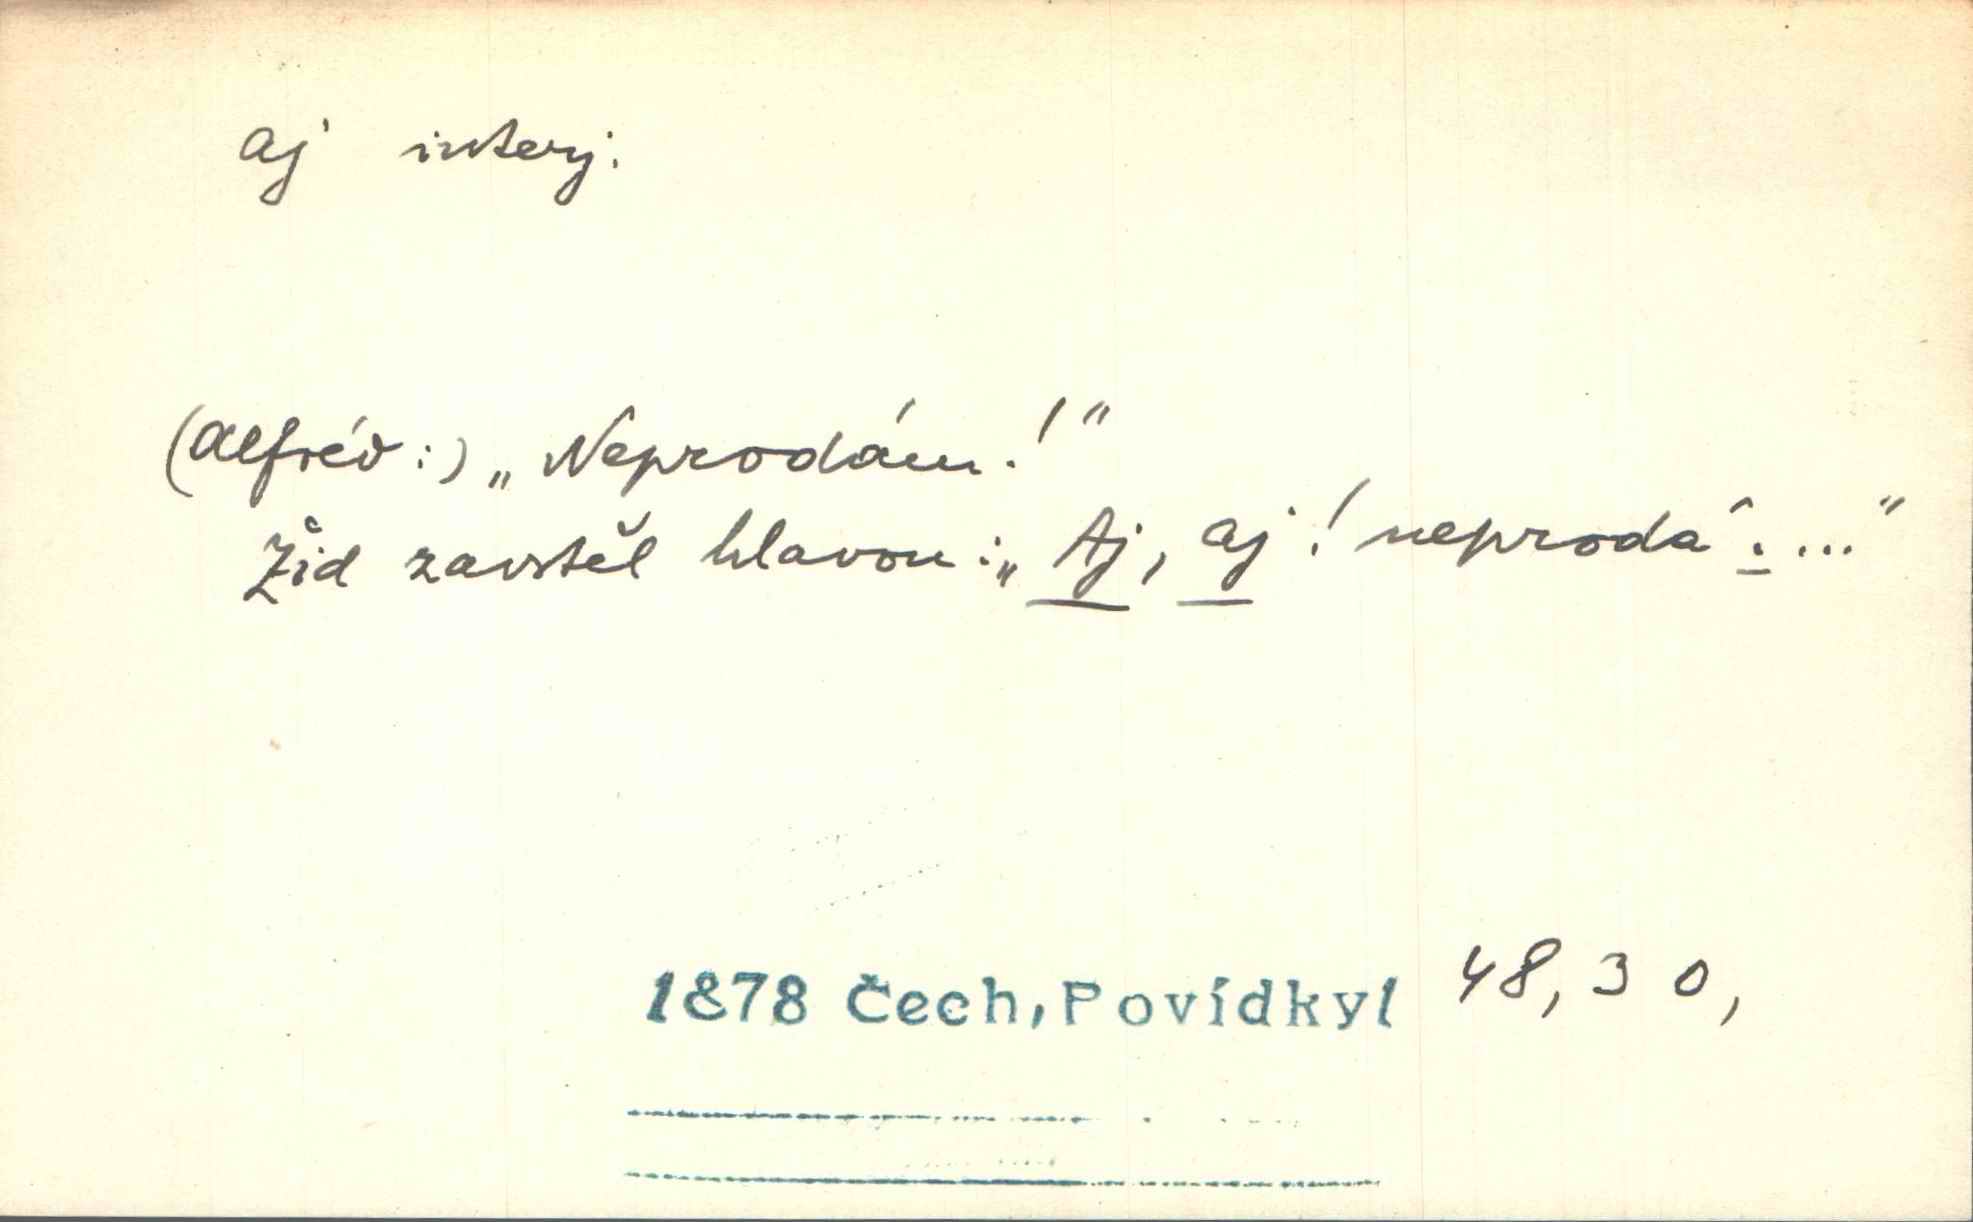 aj interj.
(Alfréd:) „Neprodám!“
Žid zavrtěl hlavou: „Aj, aj! neprodá....“
1878 Čech, Povídky1 48, 30,